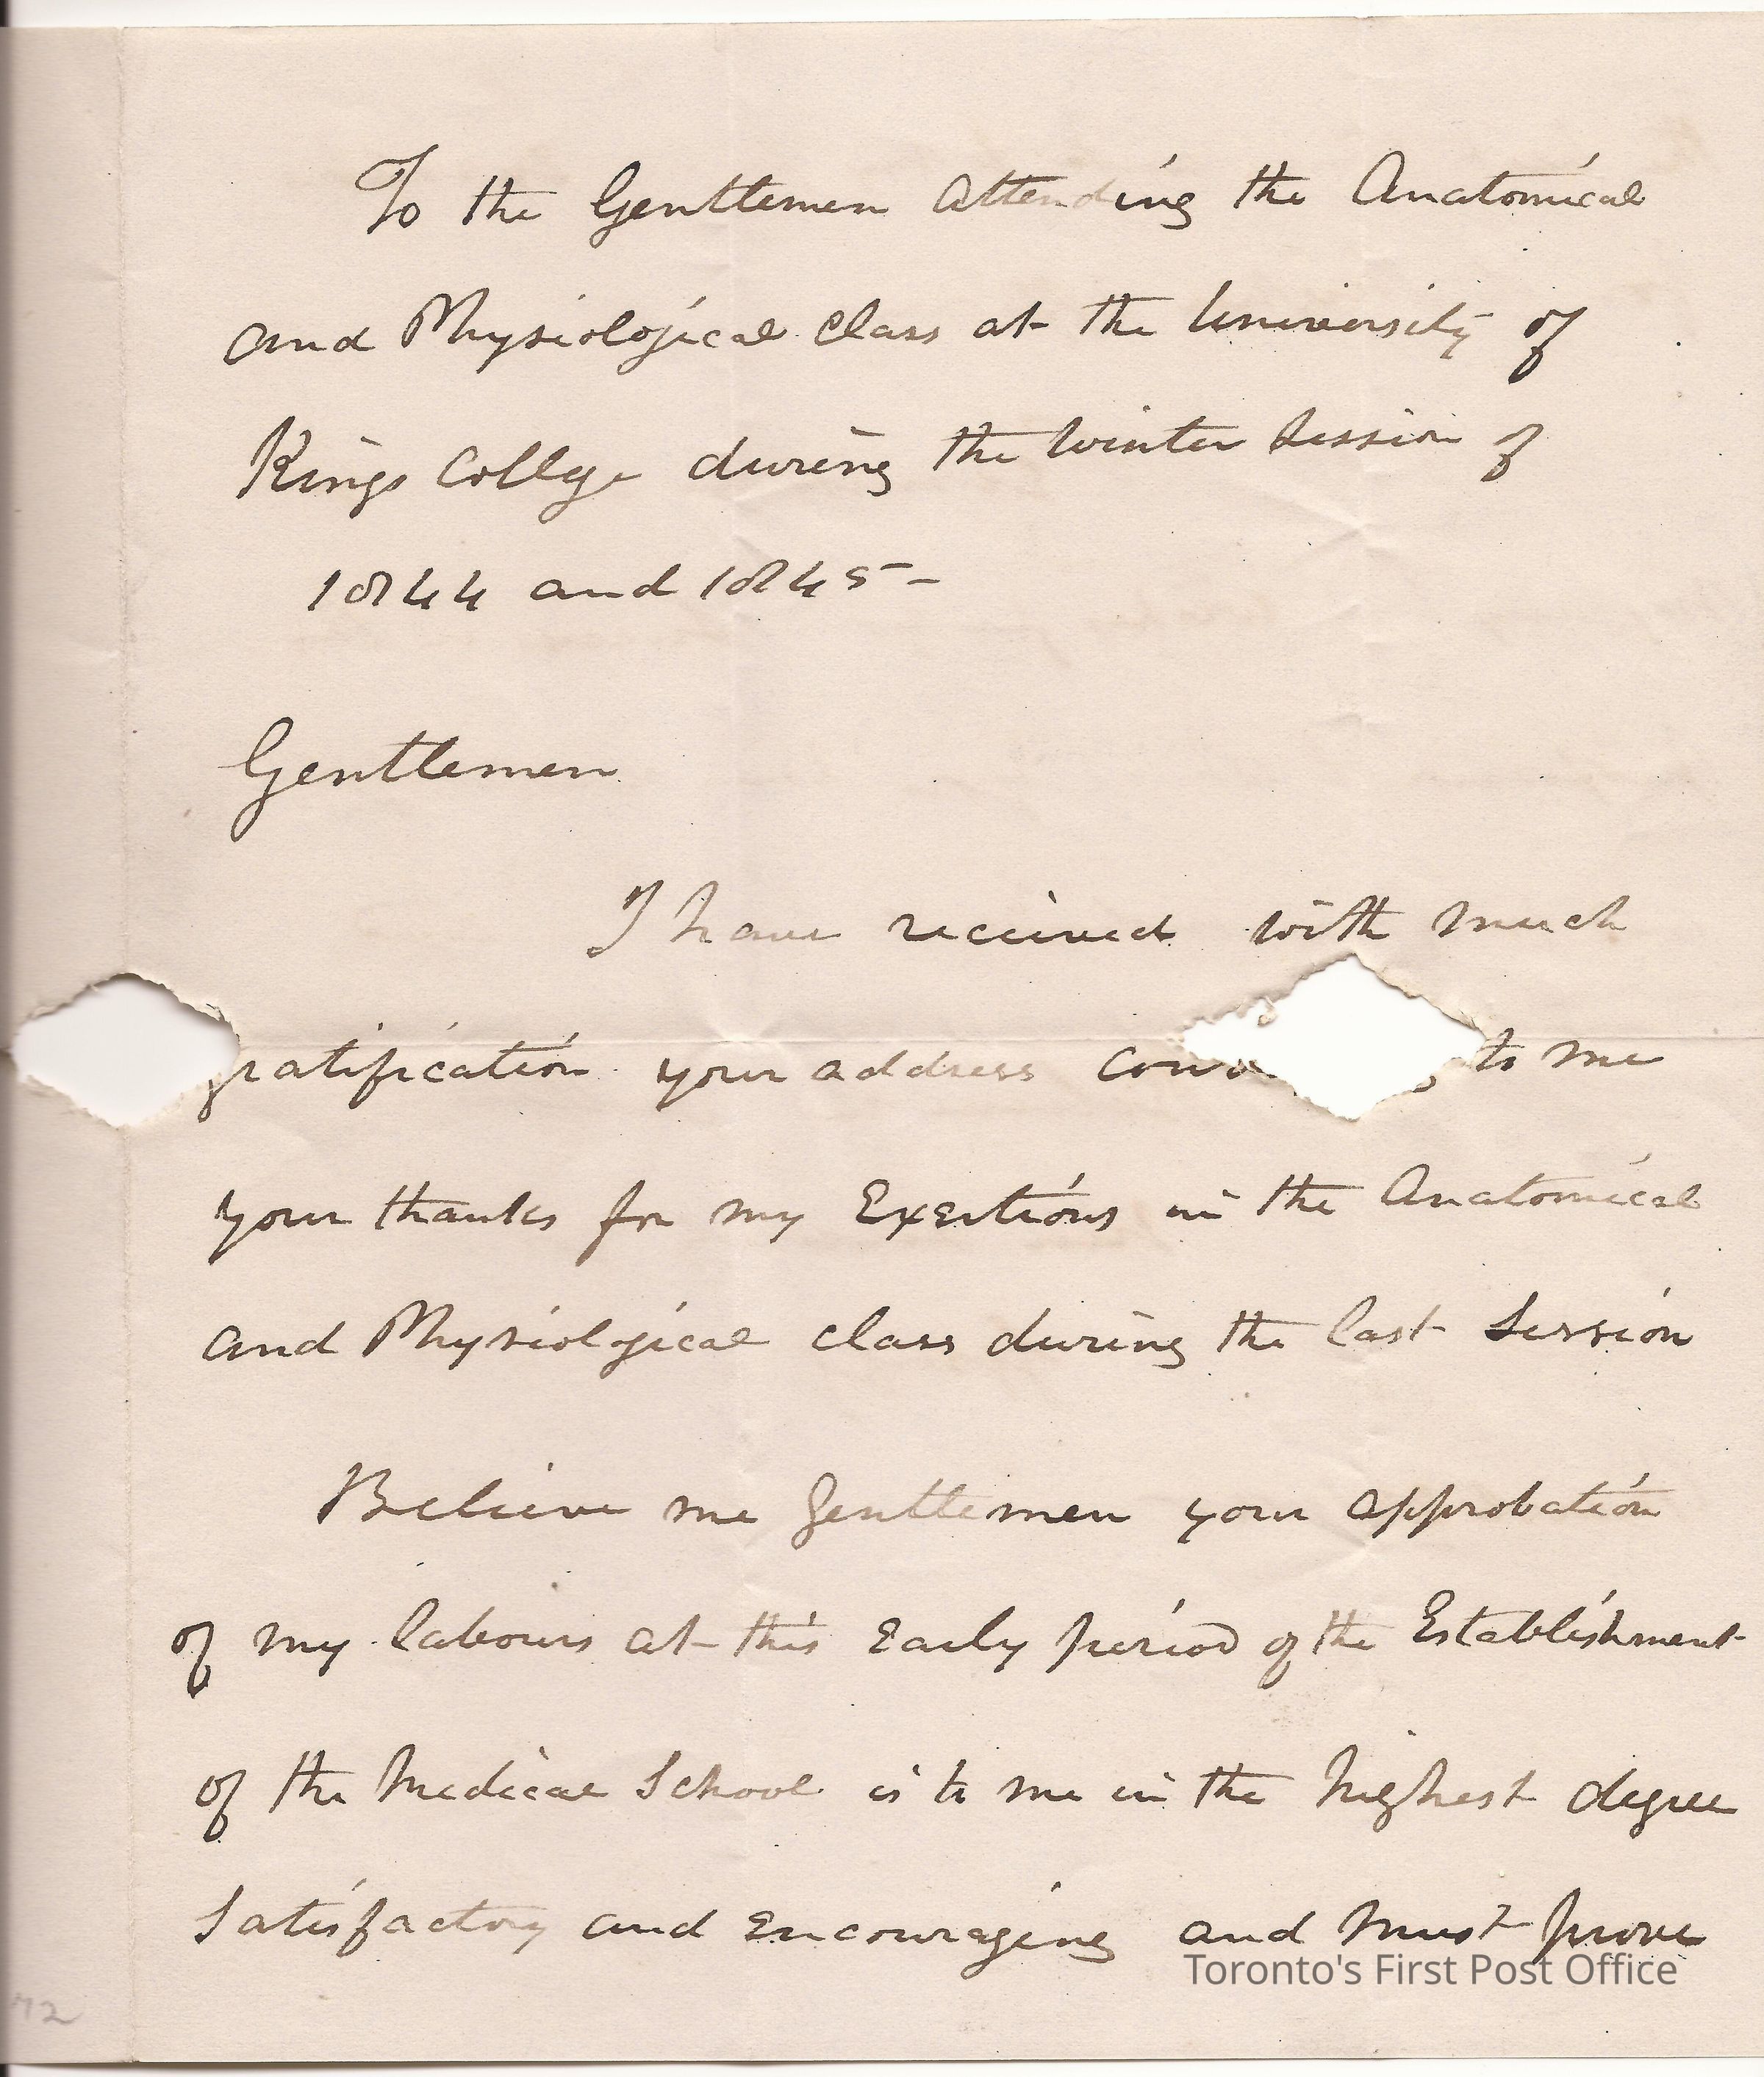 To the Gentlemen Attending the Anatomical
and Physiological Class at the University of
Kings College during the Winter Session of
1844 and 1845 -
Gentlemen
I have received with much
gratification your address to me
your thanks for my Exertions in the Anatomical
and Physiological Class during the last Session
Believe me Gentlemen your approbation
of my labours at this Early period of the Establishment
of the Medical School is to me in the highest degree
Satisfactory and Encouraging and must prove
Toronto's First Post Office
72